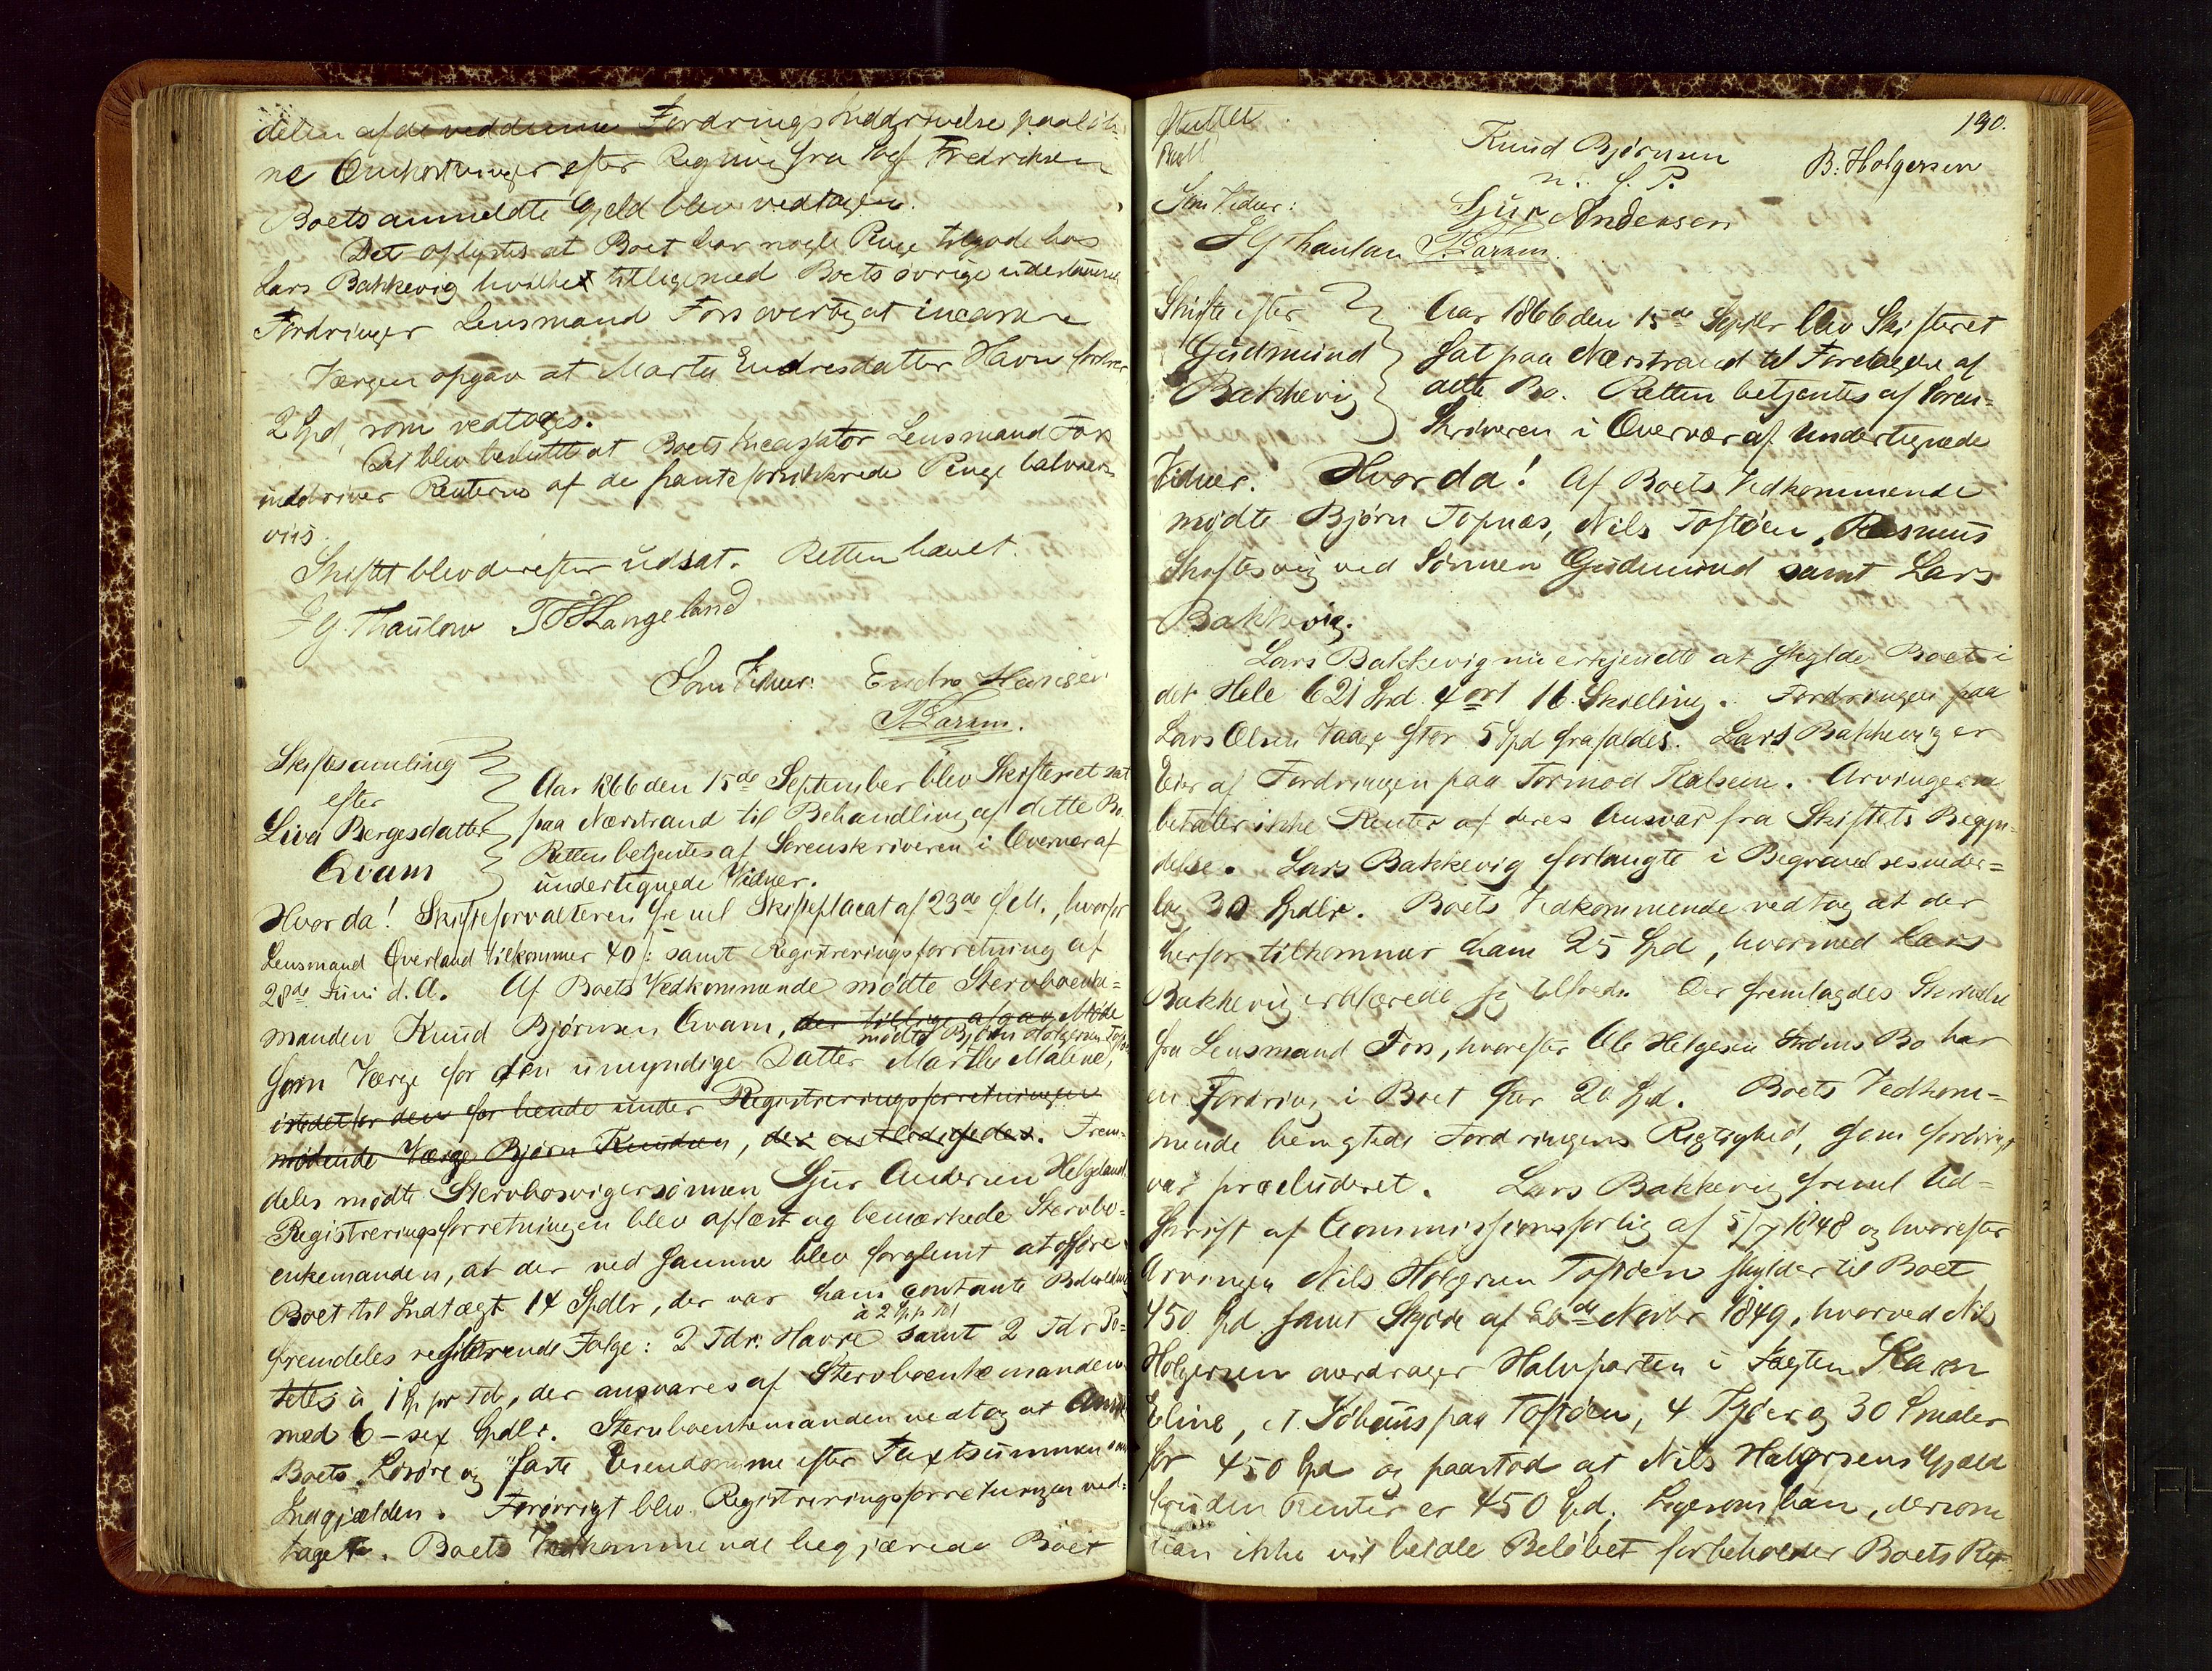 delen af de ved denne Fordrings Inddrivelse paaløb-
ne Omkostninger efter Regning fra Fredriksen
Boets anmeldte Gjeld blev vedtagen.
Det oplystes at Boet har nogle Penge tilgode hos
Lars Bakkevig hvilket tilligemed Boets øvrige udestaaende
Fordringer Lensmand Fors overtog at incassere
Værgen opgav at Marta Endresdatter Havn fordrer
2 Spd, som vedtoges.
Det blev besluttet at Boets Incassator Lensmand Fors
inddriver Renterne af de panteforsikkrede Penge halvaar-
viis.
Skiftet blev derefter udsat. Retten hævet.
J G. Thaulow T T Hangeland
Som Vidner: Endre Hansen
T Larsen.
Skiftesamling
efter
Liva Bergesdatter
Qvam
Aar 1866 den 15de September blev Skifteret sat
paa Nærstrand til Behandling af dette Bo.
Retten betjentes af Sorenskriveren i Overvær af
undertegnede Vidner.
Hvorda! Skifteforvalteren frem Skifteplacat af 23de f. M., hvorfor
Lensmand Qverland tilkommer 40 ß: samt Registreringsforretning af
28de Juni d. A. Af Boets Vedkommende mødte Stervboenke-
manden Knud Bjørnsen Qvam, der tillige afgav Møde
mødte Bjørn Holgersen
som Værge for den umyndige Datter Marthe Malene,
istedetfor den for hende under Registreringsforretningen
mødende Værge Bjørn Knudsen, der entledigedes. Frem-
deles mødte Stervbosvigersønnen Sjur Andersen Helgeland.
Registreringsforretningen blev oplæst og bemærkede Stervbo-
enkemanden, at der ved samme blev forglemt at opføre
Boet til Indtægt 14 Spdlr, der var hans contante Beholdning
à 2 Sp pr Td
fremdeles registrerende Følge: 2 Tdr. Havre samt 2 Tdr Po-
tetes à 1 Sp pr Td, der ansvares af Stervboenkemanden
med 6 - sex Spdlr. Stervboenkemanden vedtog at
Boets Løsøre og faste Eiendomme efter Taxtsummen
Indgjælden. Forøvrigt blev Registreringsforretningen ved-
taget. Boets Vedkommende begjærede Boet
130.
sluttet.
Knud Bjørnsen B: Holgersen
m. f. P.
Som Vidner: Sjur Andersen
J G Thaulow T. Larsen.
Skifte efter
Gudmund
Bakkevig
Aar 1866 den 15de Septbr blev Skifteret
sat paa Nærstrand til Foretagelse af
dette Bo. Retten betjentes af Soren-
skriveren i Overvær af undertegnede
Vidner. Hvorda! Af Boets Vedkommende
mødte Bjørn Topnæs, Nils Toftøen, Rasmus
Skeftesvig ved Sønnen Gudmund samt Lars
Bakkevig.
Lars Bakkevig nu erkjendte at skylde Boet i
det Hele 621 Spd 4 ort 16 Skilling. Fordringen paa
Lars Olsen Vaage stor 5 Spd frafaldes. Lars Bakkevig er
Eier af Fordringen paa Tormod Kalsem. Arvingerne
betaler ikke Renter af deres Ansvar fra Skiftets Begyn-
delse. Lars Bakkevig forlangte i Begravelsesveder-
lag 30 Spdlr. Boets Vedkommende vedtog at der
herfor tilkommer ham 25 Spd, hvormed Lars
Bakkevig erklærede sig tilfreds. Der fremlagdes Skrivelse
fra Lensmand Fors, hvorefter Ole Helgesen Ströms Bo har
en Fordring i Boet stor 20 Spd. Boets Vedkom-
mende benegtede Fordringens Rigtighed, som forøvrigt
var præcluderet. Lars Bakkevig freml Ud-
skrift af Commissionsforlig af 5/7 1848 og hvorefter
Arvingen Nils Holgersen Toftøen skylder til Boet
450 Spd samt Skjøde af Novbr 1849, hvorved Nils
Holgersen overdrager Halvparten i Jægten Karen
Eline, et Søhuus paa Toftøen, 4 Kjøer og 30 Smaler
for 450 Spd og paastod at Nils Holgersens Gjæld
foruden Renter er 450 Spd. Ligesom han, dersom
han ikke vil betale Beløbet forbeholder Boets Ret